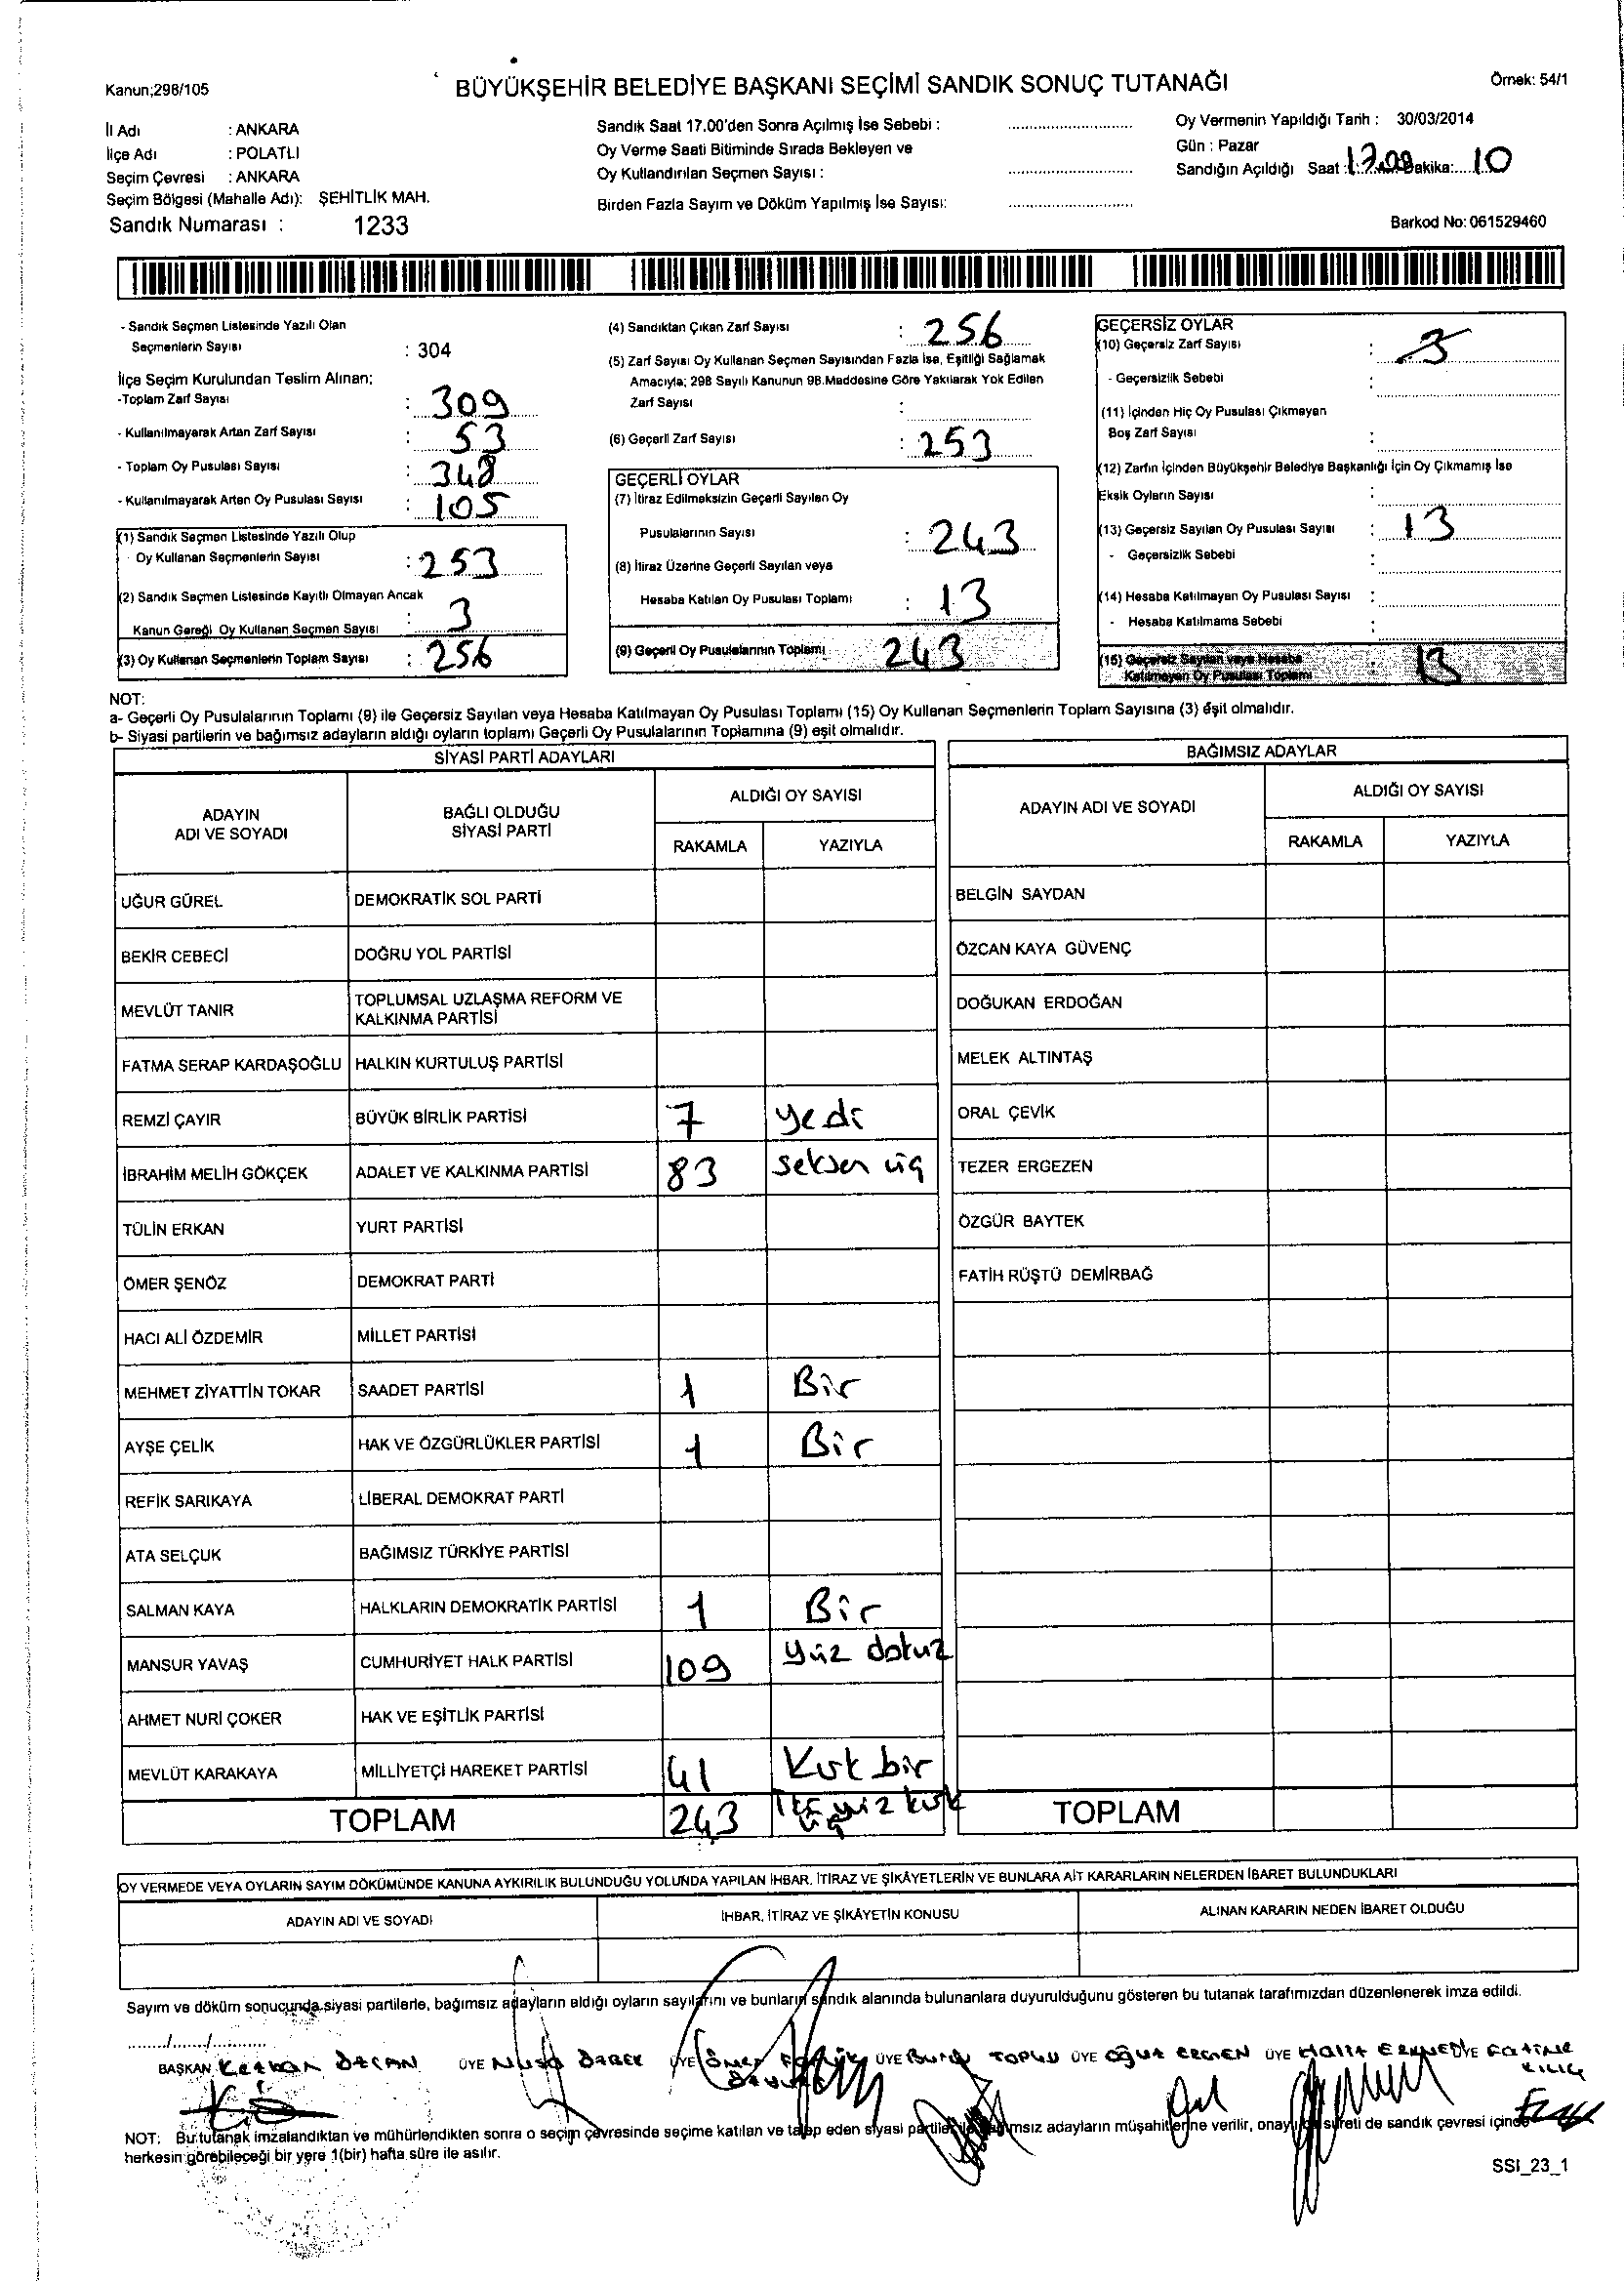 Kanun;298/105
BÜYÜKŞEHİR BELEDİYE BAŞKANI SEÇİMİ SANDIK SONUÇ TUTANAĞI
Örnek: 54/1
İl Adı : ANKARA
İlçe Adı : POLATLI
Seçim Çevresi : ANKARA
Seçim Bölgesi (Mahalle Adı): ŞEHİTLİK MAH.
Sandık Numarası : 1233
Sandık Saat 17.00'den Sonra Açılmış İse Sebebi :
Oy Verme Saati Bitiminde Sırada Bekleyen ve
Oy Kullandırılan Seçmen Sayısı :
Birden Fazla Sayım ve Döküm Yapılmış İse Sayısı:
Oy Vermenin Yapıldığı Tarih : 30/03/2014
Gün : Pazar
Sandığın Açıldığı Saat : Dakika: 10
Barkod No: 061529460
- Sandık Seçmen Listesinde Yazılı Olan
Seçmenlerin Sayısı : 304
İlçe Seçim Kurulundan Teslim Alınan;
-Toplam Zarf Sayısı : 309
- Kullanılmayarak Artan Zarf Sayısı : 53
- Toplam Oy Pusulası Sayısı : 348
- Kullanılmayarak Artan Oy Pusulası Sayısı : 105
(1) Sandık Seçmen Listesinde Yazılı Olup
Oy Kullanan Seçmenlerin Sayısı : 253
(2) Sandık Seçmen Listesinde Kayıtlı Olmayan Ancak
Kanun Gereği Oy Kullanan Seçmen Sayısı : 3
(3) Oy Kullanan Seçmenlerin Toplam Sayısı : 256
(4) Sandıktan Çıkan Zarf Sayısı : 256
(5) Zarf Sayısı Oy Kullanan Seçmen Sayısından Fazla İse, Eşitliği Sağlamak
Amacıyla; 298 Sayılı Kanunun 98.Maddesine Göre Yakılarak Yok Edilen
Zarf Sayısı :
(6) Geçerli Zarf Sayısı : 253
GEÇERLİ OYLAR
(7) İtiraz Edilmeksizin Geçerli Sayılan Oy
Pusulalarının Sayısı : 243
(8) İtiraz Üzerine Geçerli Sayılan veya
Hesaba Katılan Oy Pusulası Toplamı : 13
(9) Geçerli Oy Pusulalarının Toplamı 243
GEÇERSİZ OYLAR
(10) Geçersiz Zarf Sayısı : 3
- Geçersizlik Sebebi :
(11) İçinden Hiç Oy Pusulası Çıkmayan
Boş Zarf Sayısı :
(12) Zarfın İçinden Büyükşehir Belediye Başkanlığı İçin Oy Çıkmamış İse
Eksik Oyların Sayısı :
(13) Geçersiz Sayılan Oy Pusulası Sayısı : 13
- Geçersizlik Sebebi :
(14) Hesaba Katılmayan Oy Pusulası Sayısı :
- Hesaba Katılmama Sebebi :
(15) Geçersiz Sayılan veya Hesaba
Katılmayan Oy Pusulası Toplamı : 13
NOT:
a- Geçerli Oy Pusulalarının Toplamı (9) ile Geçersiz Sayılan veya Hesaba Katılmayan Oy Pusulası Toplamı (15) Oy Kullanan Seçmenlerin Toplam Sayısına (3) eşit olmalıdır.
b- Siyasi partilerin ve bağımsız adayların aldığı oyların toplamı Geçerli Oy Pusulalarının Toplamına (9) eşit olmalıdır.
SİYASİ PARTİ ADAYLARI
ADAYIN ADI VE SOYADI
BAĞLI OLDUĞU SİYASİ PARTİ
ALDIĞI OY SAYISI
RAKAMLA YAZIYLA
UĞUR GÜREL DEMOKRATİK SOL PARTİ
BEKİR CEBECİ DOĞRU YOL PARTİSİ
MEVLÜT TANIR TOPLUMSAL UZLAŞMA REFORM VE KALKINMA PARTİSİ
FATMA SERAP KARDAŞOĞLU HALKIN KURTULUŞ PARTİSİ
REMZİ ÇAYIR BÜYÜK BİRLİK PARTİSİ 7 yedi
İBRAHİM MELİH GÖKÇEK ADALET VE KALKINMA PARTİSİ 83 seksen üç
TÜLİN ERKAN YURT PARTİSİ
ÖMER ŞENÖZ DEMOKRAT PARTİ
HACI ALİ ÖZDEMİR MİLLET PARTİSİ
MEHMET ZİYATTİN TOKAR SAADET PARTİSİ 1 Bir
AYŞE ÇELİK HAK VE ÖZGÜRLÜKLER PARTİSİ 1 Bir
REFİK SARIKAYA LİBERAL DEMOKRAT PARTİ
ATA SELÇUK BAĞIMSIZ TÜRKİYE PARTİSİ
SALMAN KAYA HALKLARIN DEMOKRATİK PARTİSİ 1 Bir
MANSUR YAVAŞ CUMHURİYET HALK PARTİSİ 109 yüz dokuz
AHMET NURİ ÇOKER HAK VE EŞİTLİK PARTİSİ
MEVLÜT KARAKAYA MİLLİYETÇİ HAREKET PARTİSİ 41 Kırk bir
TOPLAM 243 İki yüz kırk üç
BAĞIMSIZ ADAYLAR
ADAYIN ADI VE SOYADI
ALDIĞI OY SAYISI
RAKAMLA YAZIYLA
BELGİN SAYDAN
ÖZCAN KAYA GÜVENÇ
DOĞUKAN ERDOĞAN
MELEK ALTINTAŞ
ORAL ÇEVİK
TEZER ERGEZEN
ÖZGÜR BAYTEK
FATİH RÜŞTÜ DEMİRBAĞ
TOPLAM
OY VERMEDE VEYA OYLARIN SAYIM DÖKÜMÜNDE KANUNA AYKIRILIK BULUNDUĞU YOLUNDA YAPILAN İHBAR, İTİRAZ VE ŞİKÂYETLERİN VE BUNLARA AİT KARARLARIN NELERDEN İBARET BULUNDUKLARI
ADAYIN ADI VE SOYADI İHBAR, İTİRAZ VE ŞİKÂYETİN KONUSU ALINAN KARARIN NEDEN İBARET OLDUĞU
Sayım ve döküm sonucunda siyasi partilerle, bağımsız adayların aldığı oyların sayılarını ve bunların sandık alanında bulunanlara duyurulduğunu gösteren bu tutanak tarafımızdan düzenlenerek imza edildi.
BAŞKAN ÖZCAN ÜYE ÜYE ÖMER ÜYE TOPLU ÜYE OĞUZ ERGEN ÜYE HALİT ÜYE FATİME KILIÇ
NOT: Bu tutanak imzalandıktan ve mühürlendikten sonra o seçim çevresinde seçime katılan ve talep eden siyasi partiler ile bağımsız adayların müşahitlerine verilir, onaylı bir sureti de sandık çevresi içinde
herkesin görebileceği bir yere 1(bir) hafta süre ile asılır.
SSI_23_1